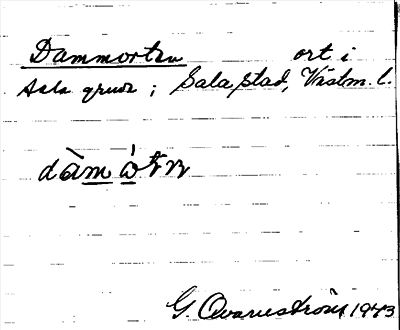 Dammorten ort i
Sala gruva; Sala stad, Västm. l.
dàm ò̀tṇ
G. Qvarnström 1943